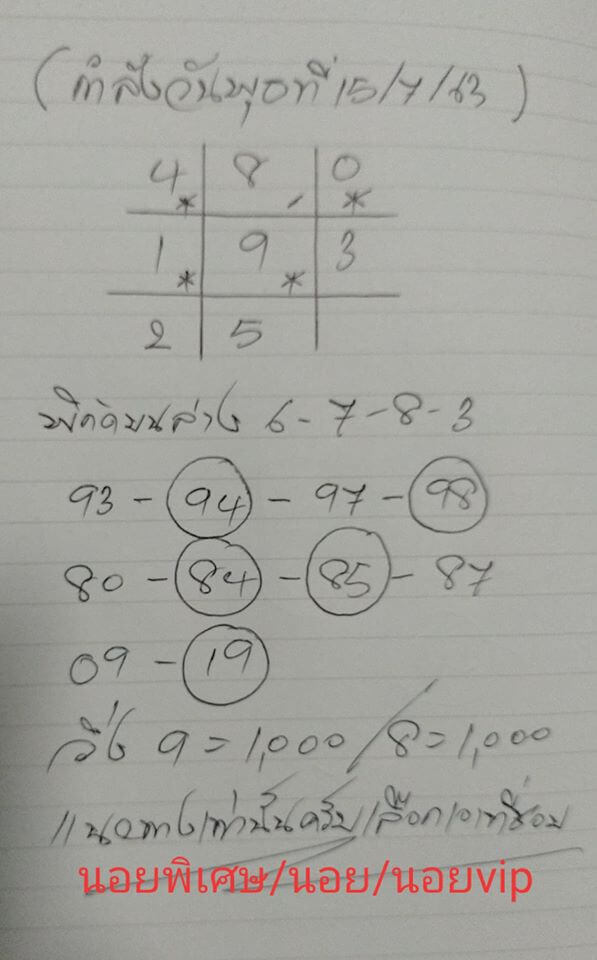 (กำลังวันพุธที่ 15/7/63)
4 8 0
1 9 3
2 5
พิกัดบนล่าง 6-7-8-3
93 - 94 - 97 - 98
80 - 84 - 85 - 87
09 - 19
วิ่ง 9 = 1,000 / 8 = 1,000
แนวทางเท่านั้นครับเลือกเอาที่ชอบ
นอยพิเศษ/นอย/นอยvip